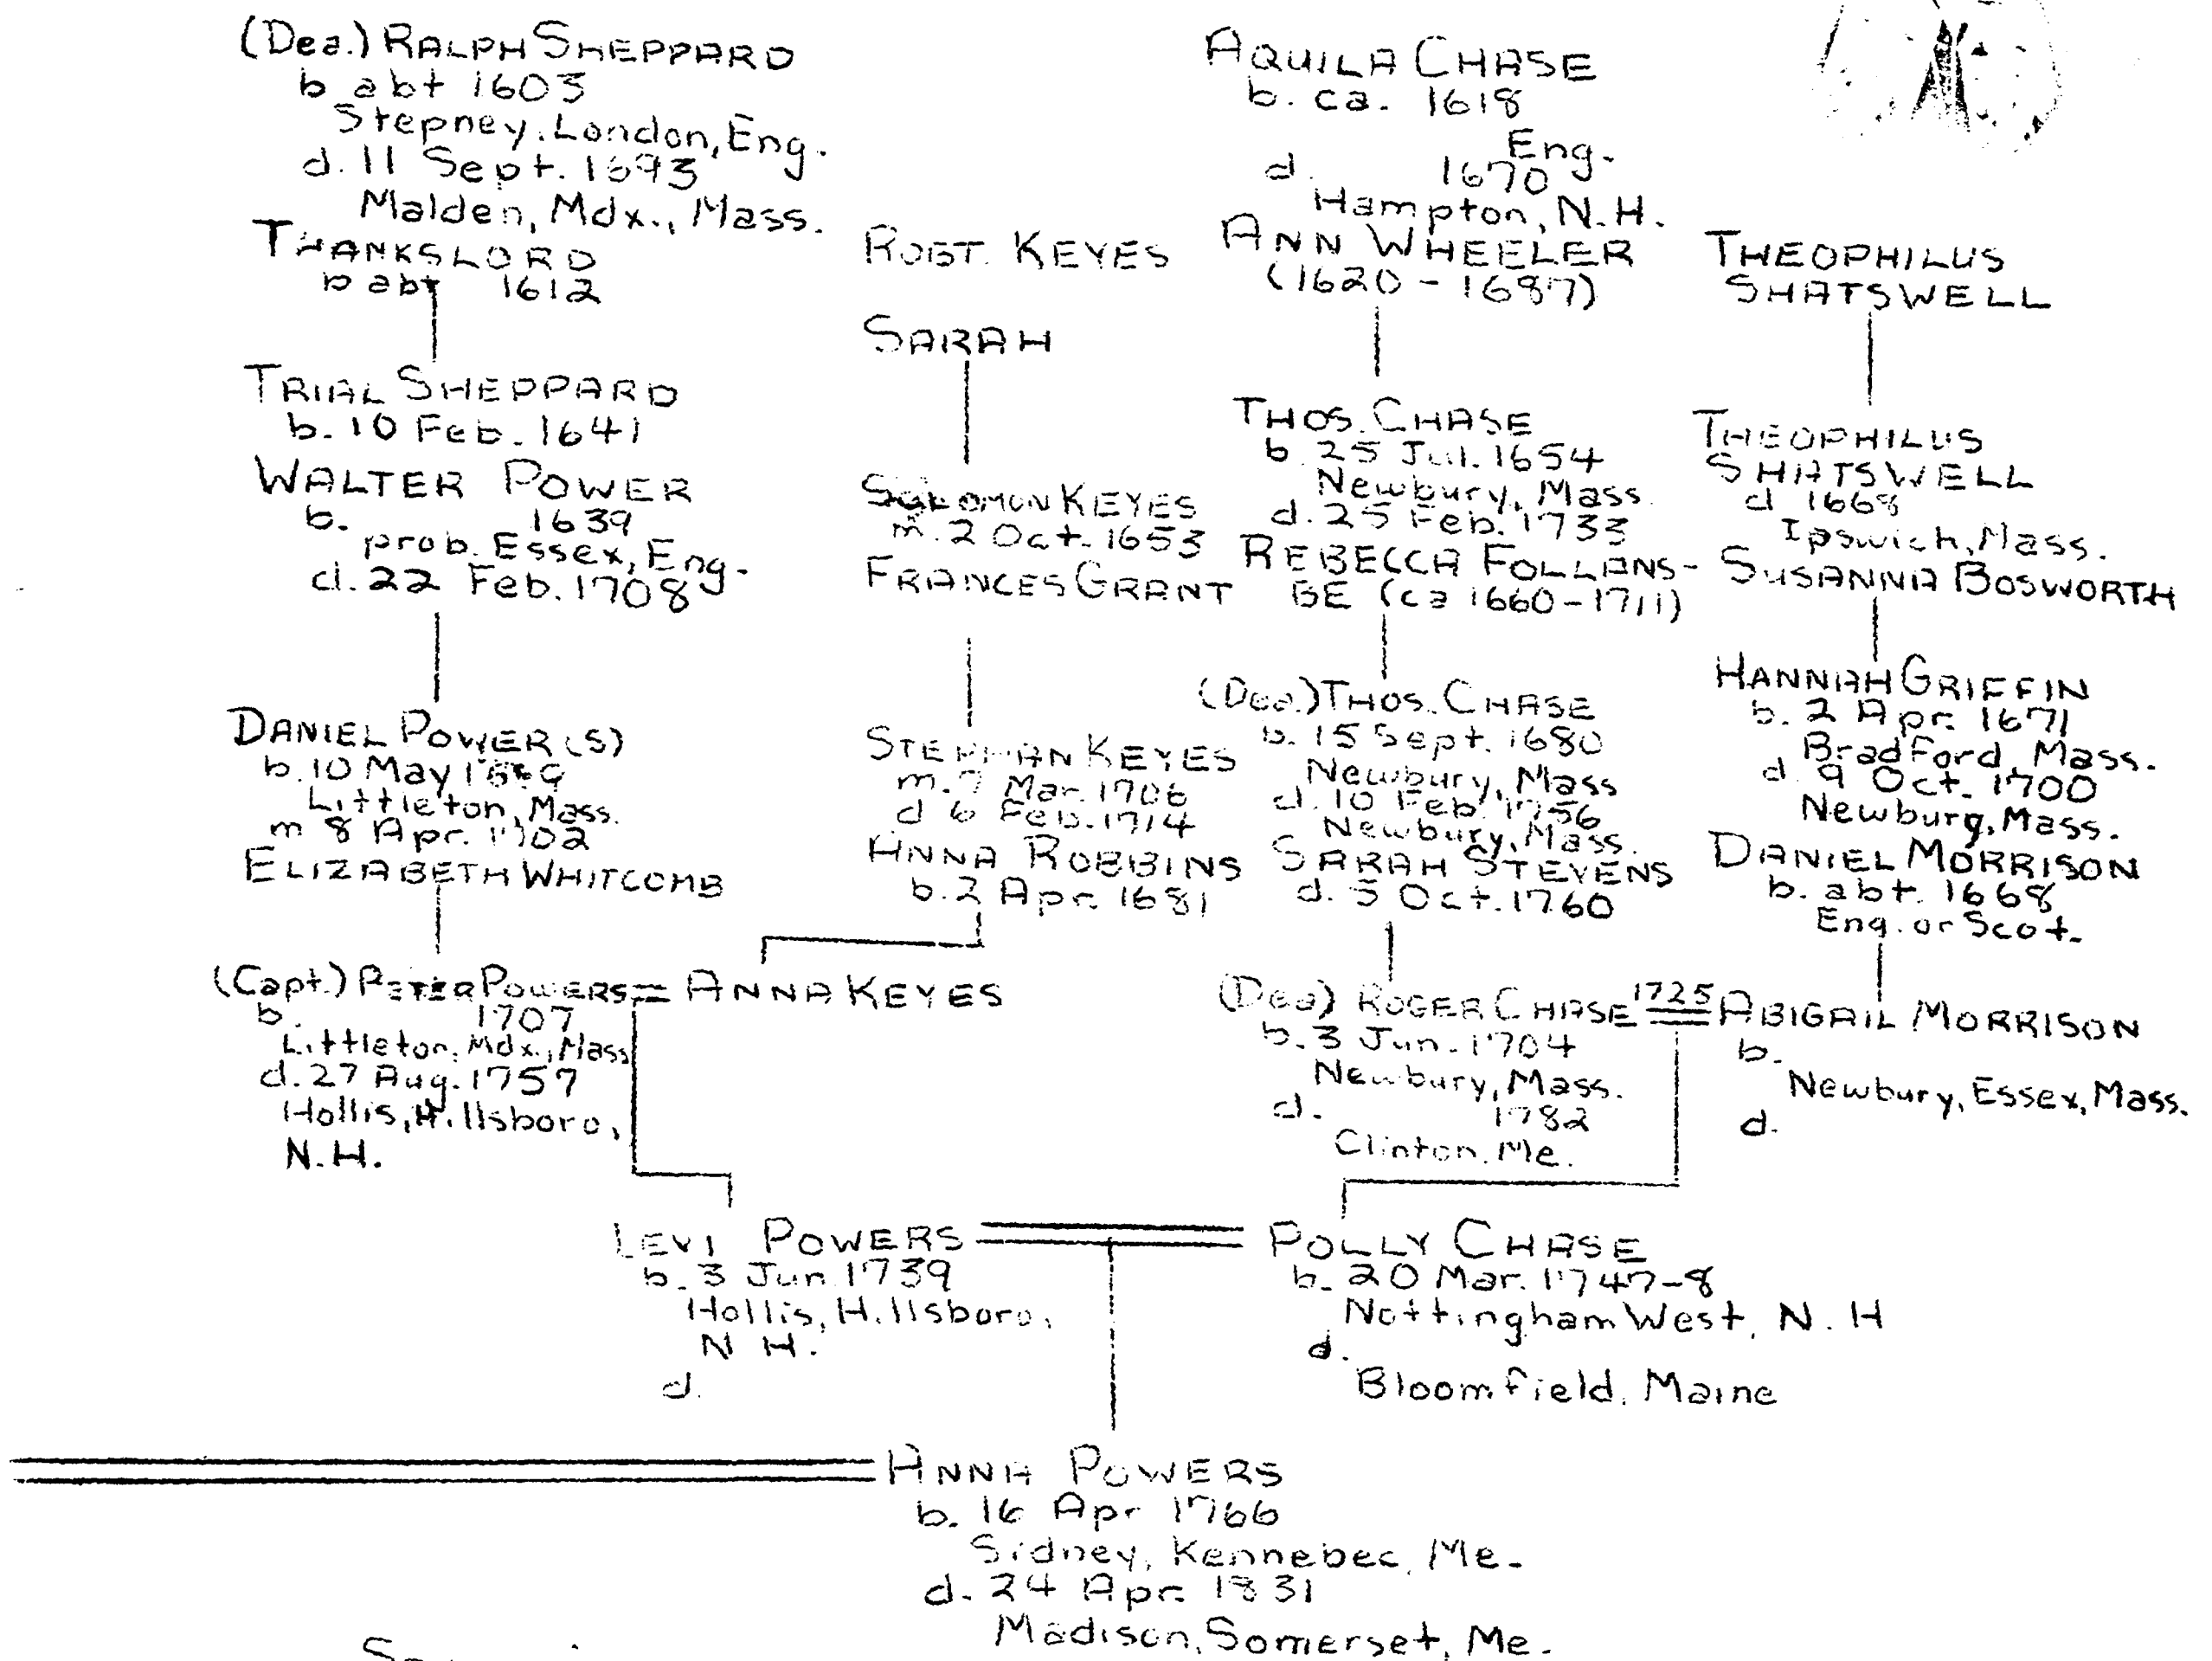 (Dea.) RALPH SHEPPARD
b abt 1603
Stepney, London, Eng.
d. 11 Sept. 1693
Malden, Mdx., Mass.
THANKSLORD
b abt 1612
TRIAL SHEPPARD
b. 10 Feb. 1641
WALTER POWER
b. 1639
prob. Essex, Eng.
d. 22 Feb. 1708
DANIEL POWER(S)
b. 10 May
Littleton, Mass.
m 8 Apr. 1702
ELIZABETH WHITCOMB
(Capt.) PETER POWERS =
b. 1707
Littleton, Mdx., Mass
d. 27 Aug. 1757
Hollis, Hillsboro,
N.H.
ROBT. KEYES
SARAH
SOLOMON KEYES
m. 2 Oct. 1653
FRANCES GRANT
STEPHAN KEYES
m. 7 Mar. 1706
d 6 Feb. 1714
ANNA ROBBINS
b. 2 Apr. 1681
ANNA KEYES
AQUILA CHASE
b. ca. 1618
Eng.
d. 1670
Hampton, N.H.
ANN WHEELER
(1620 - 1687)
THOS. CHASE
b. 25 Jul. 1654
Newbury, Mass.
d. 25 Feb. 1733
REBECCA FOLLANS-
BE (ca 1660-1711)
(Dea.) THOS. CHASE
b. 15 Sept. 1680
Newbury, Mass
d. 10 Feb. 1756
Newbury, Mass.
SARAH STEVENS
d. 5 Oct. 1760
(Dea) ROGER CHASE
b. 3 Jun. 1704
Newbury, Mass.
d. 1782
Clinton, Me.
1725
THEOPHILUS
SHATSWELL
THEOPHILUS
SHATSWELL
d 1668
Ipswich, Mass.
SUSANNA BOSWORTH
HANNAH GRIFFIN
b. 2 Apr. 1671
Bradford, Mass.
d. 9 Oct. 1700
Newburg, Mass.
DANIEL MORRISON
b. abt. 1668
Eng. or Scot.
ABIGAIL MORRISON
b.
Newbury, Essex, Mass.
d.
LEVI POWERS
b. 3 Jun 1739
Hollis, Hillsboro,
N H.
d.
POLLY CHASE
b. 20 Mar. 1747-8
Nottingham West, N. H
d.
Bloomfield, Maine
ANNA POWERS
b. 16 Apr 1766
Sidney, Kennebec, Me.
d. 24 Apr. 1831
Madison, Somerset, Me.